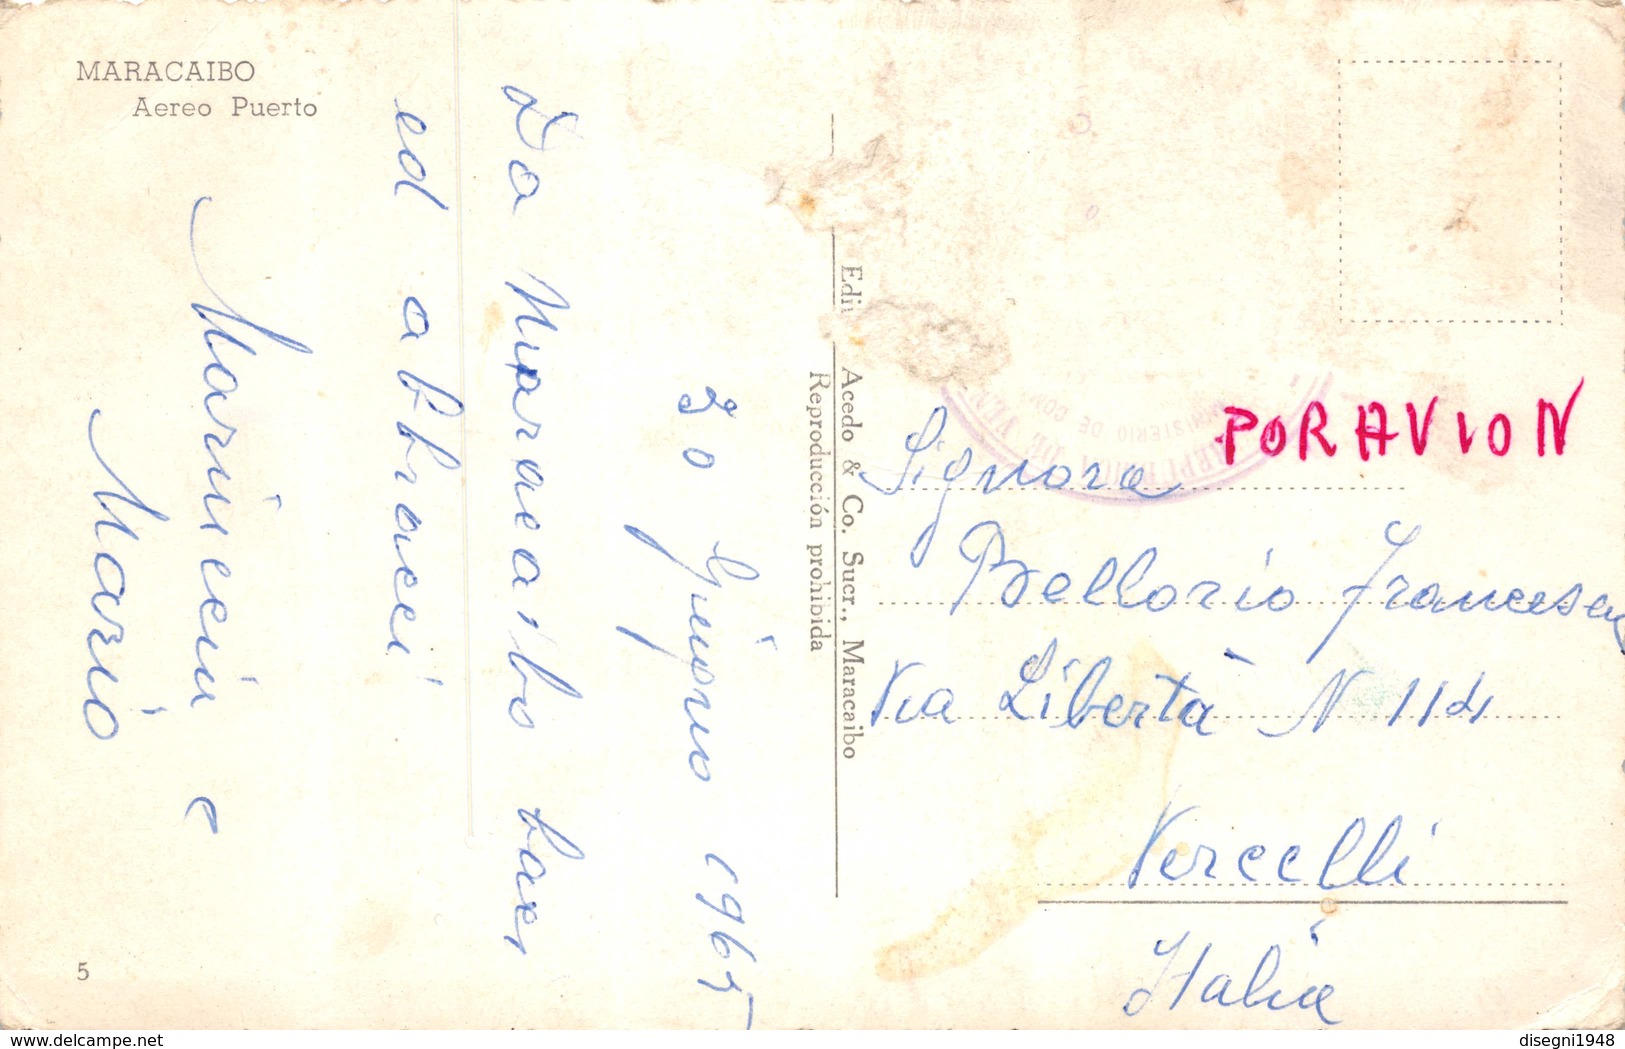 MARACAIBO
Aereo Puerto
30 Giugno 1965
Da Maracaibo baci
ed abbracci
e
Mario
5
Acedo & Co. Sucr., Maracaibo
Reproducción prohibida
MINISTERIO DE
POR AVION
Signora
Bellorio Francesca
Via Libertà N 114
Vercelli
Italia
delcampe.net
disegni1948